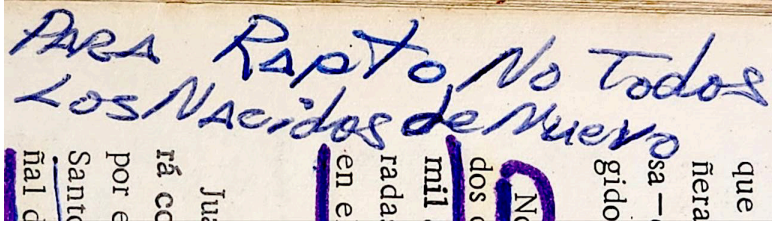 PARA Rapto No Todos
Los Nacidos de Nuevo
que
ñera
sa —
gido
No
dos
mil
radas
en e
Jua
rá co
por e
Santo
ñal d